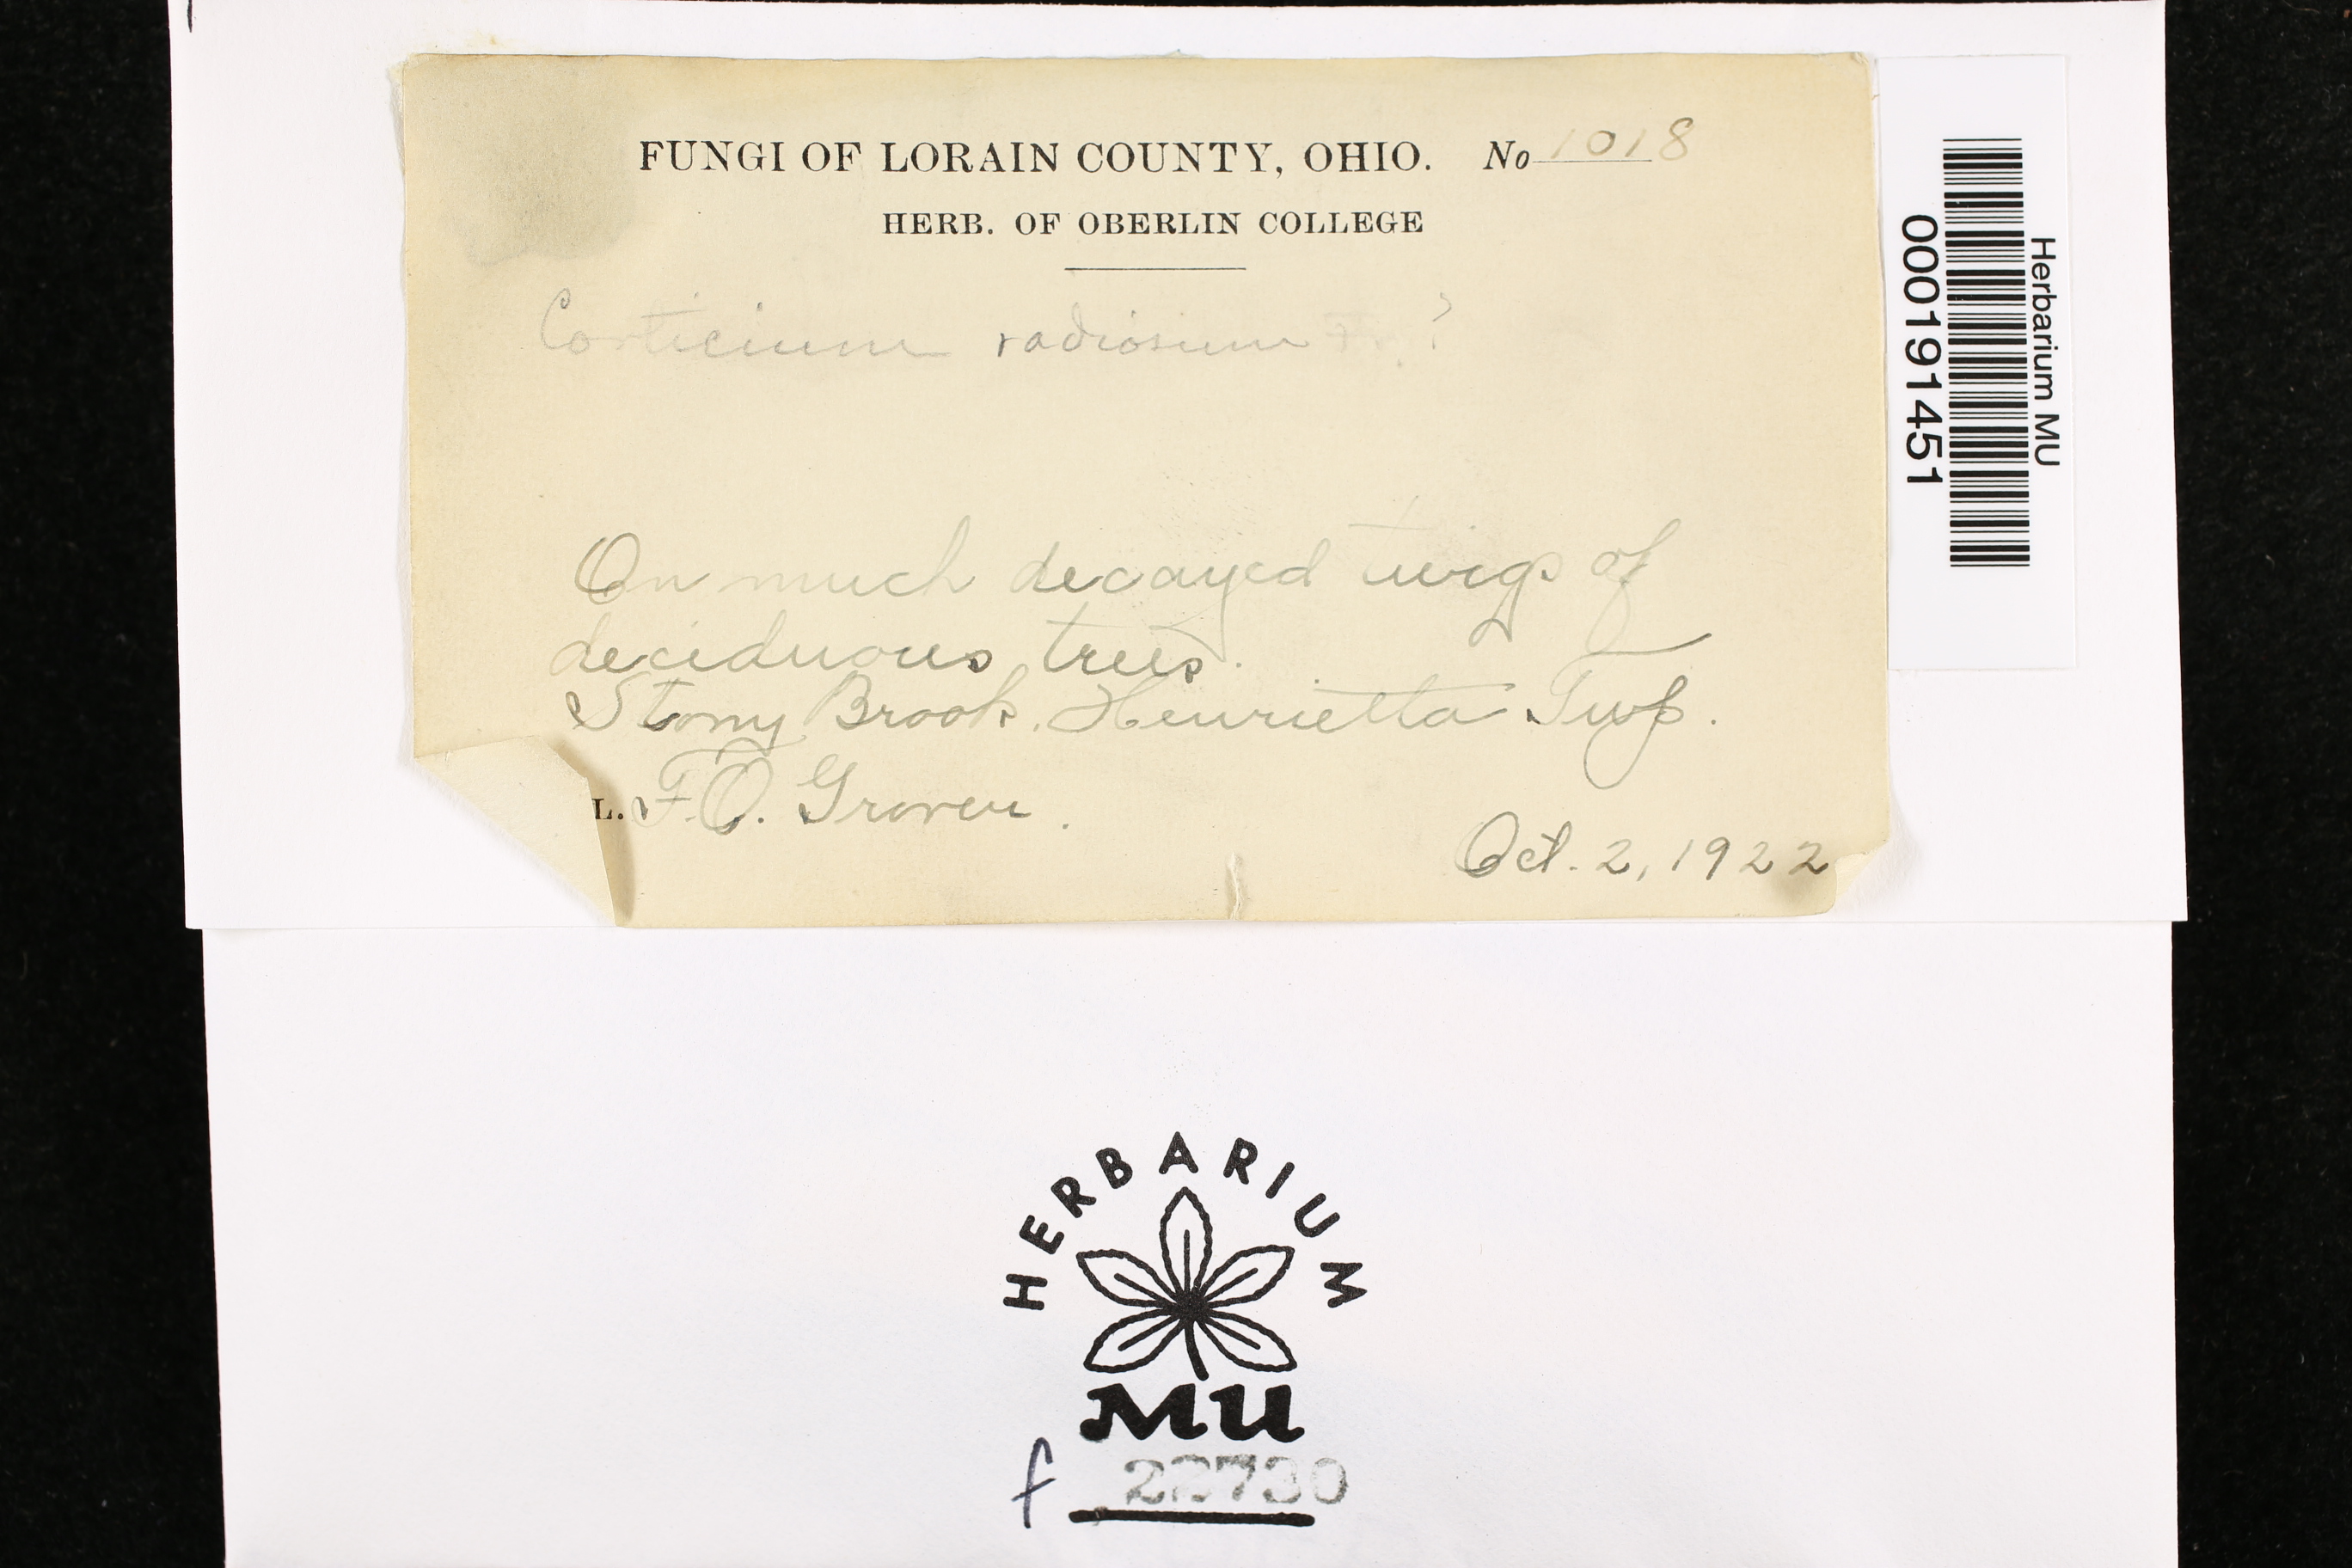 FUNGI OF LORAIN COUNTY, OHIO. No 1018
HERB. OF OBERLIN COLLEGE
Corticium radiosum Fr.?
On much decayed twigs of
deciduous trees.
Stony Brook, Henrietta Twp.
L. F.O. Grover.
Oct. 2, 1922
Herbarium MU
000191451
HERBARIUM
MU
f 22730